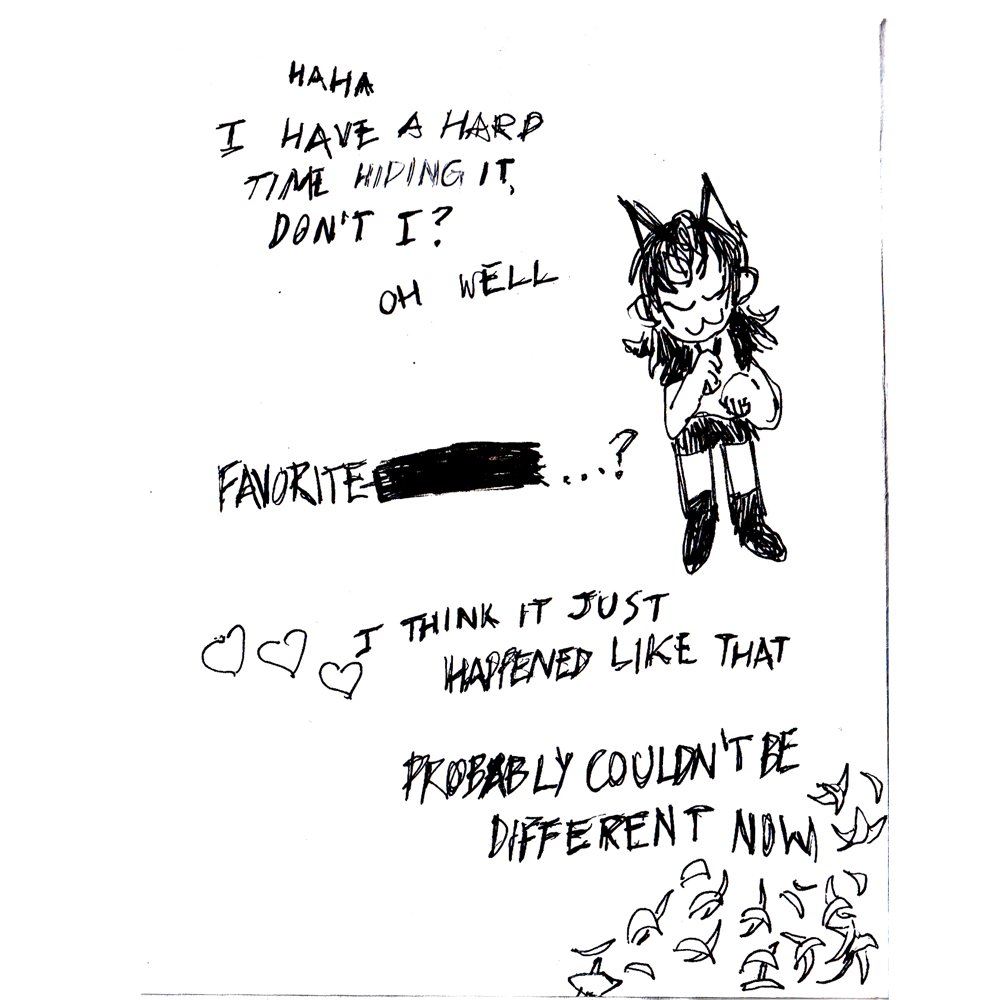 HAHA
I HAVE A HARD
TIME HIDING IT,
DON'T I?
OH WELL
FAVORITE ...?
I THINK IT JUST
HAPPENED LIKE THAT
PROBABLY COULDN'T BE
DIFFERENT NOW